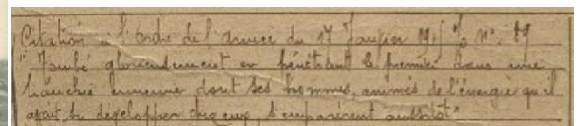 Citation à l'Ordre de l'armée du 17 Janvier 1915 N° 89
"Tombé glorieusement en pénétrant le premier dans une
tranchée ennemie dont ses hommes, animés de l'énergie qu'il
avait su développer chez eux, s'emparèrent aussitôt"